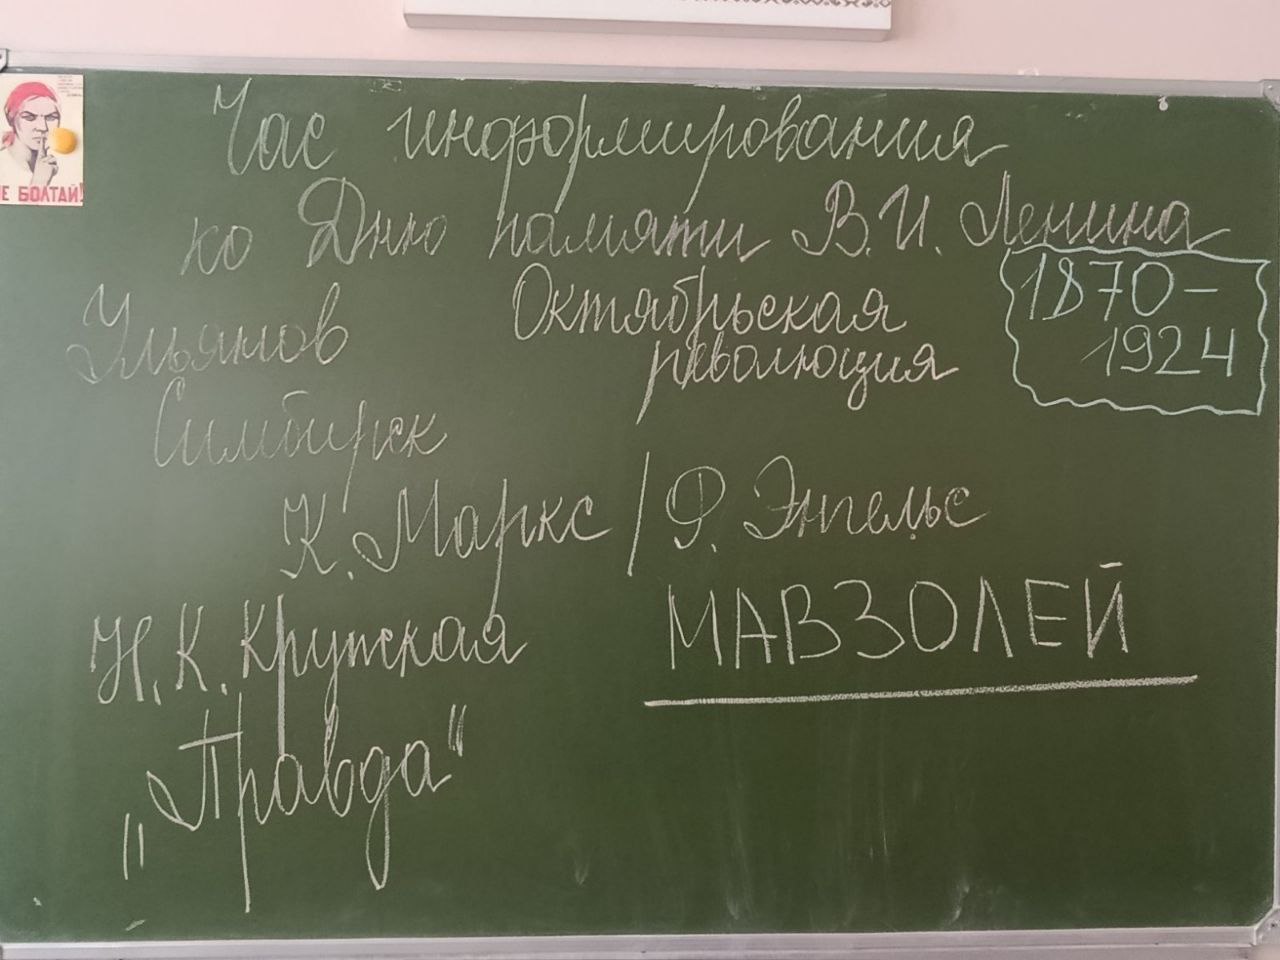 Час информирования
ко Дню памяти В.И. Ленина
1870-
1924
Ульянов
Октябрьская
революция
Симбирск
К. Маркс / Ф. Энгельс
Н.К. Крупская
МАВЗОЛЕЙ
„Правда“
НЕ БОЛТАЙ!